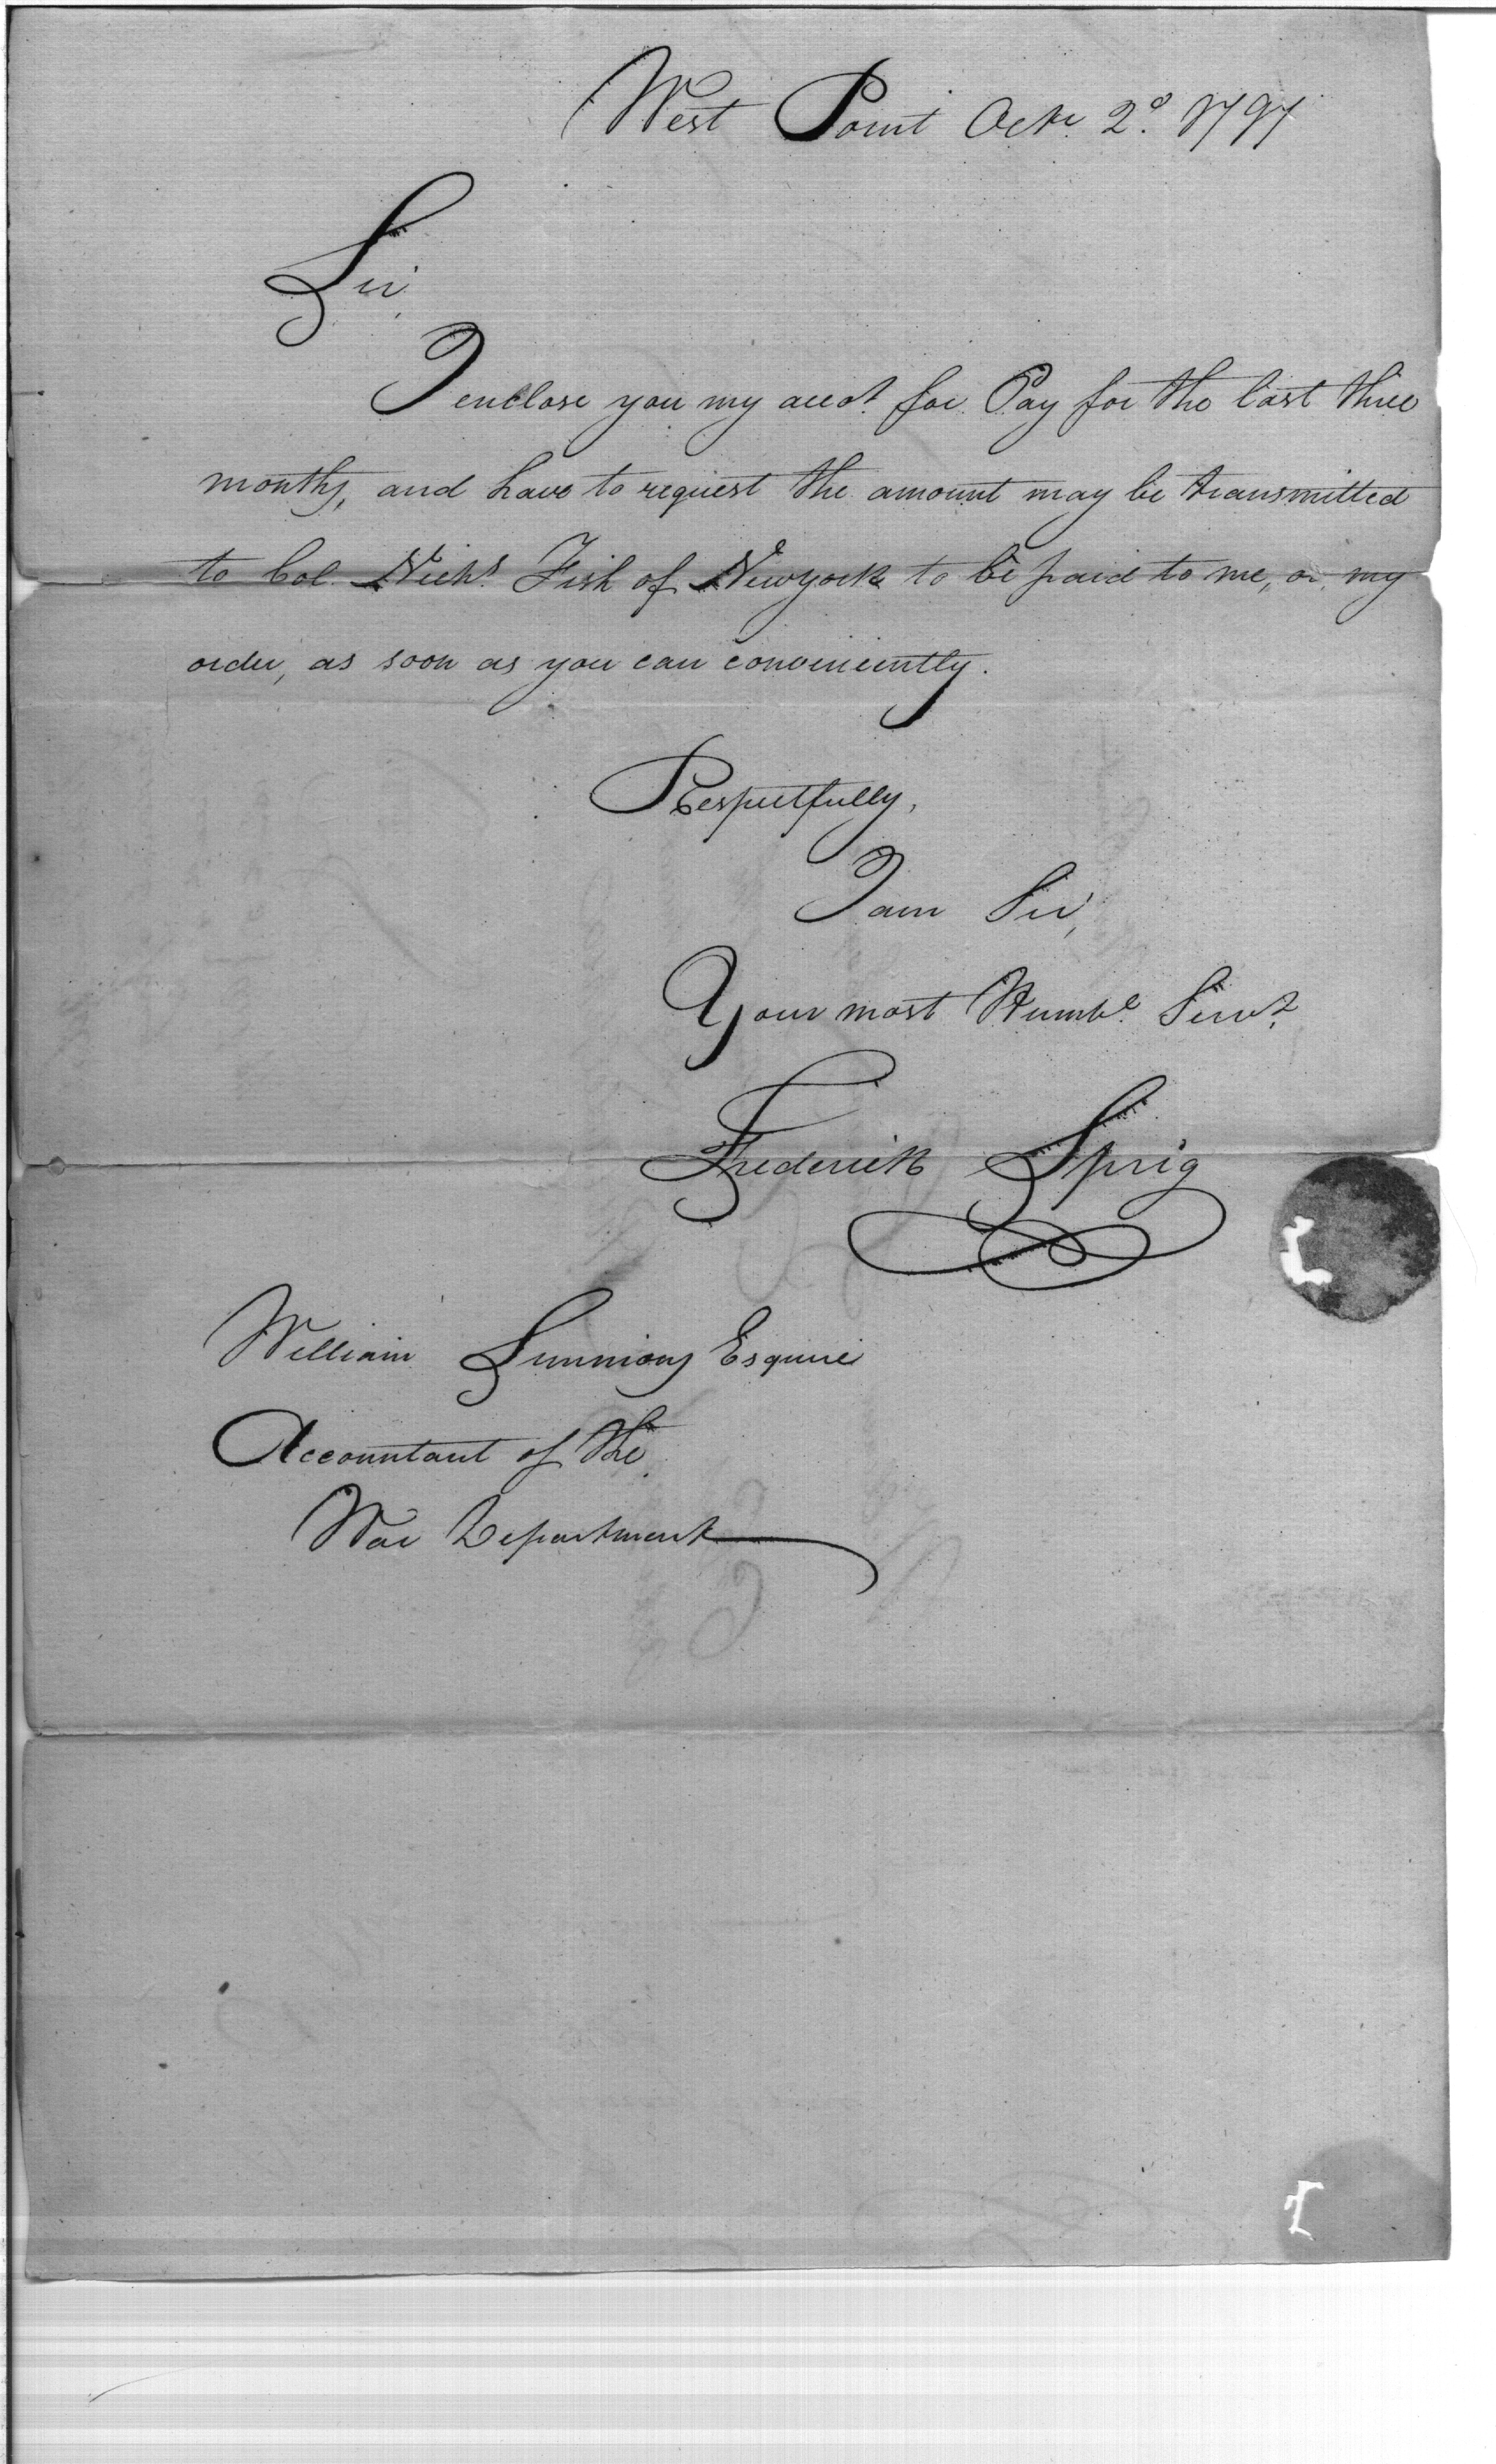 West Point Octr. 2d. 1797
Sir,
I enclose you my acco.t for Pay for the last three
months, and have to request the amount may be transmitted
to Col. Nichs. Fish of Newyork to be paid to me, or my
order, as soon as you can conveniently.
Respectfully,
I am Sir,
Your most Humble. Servt.
Frederick Sprig
William Simmons Esquire
Accountant of the
War Department